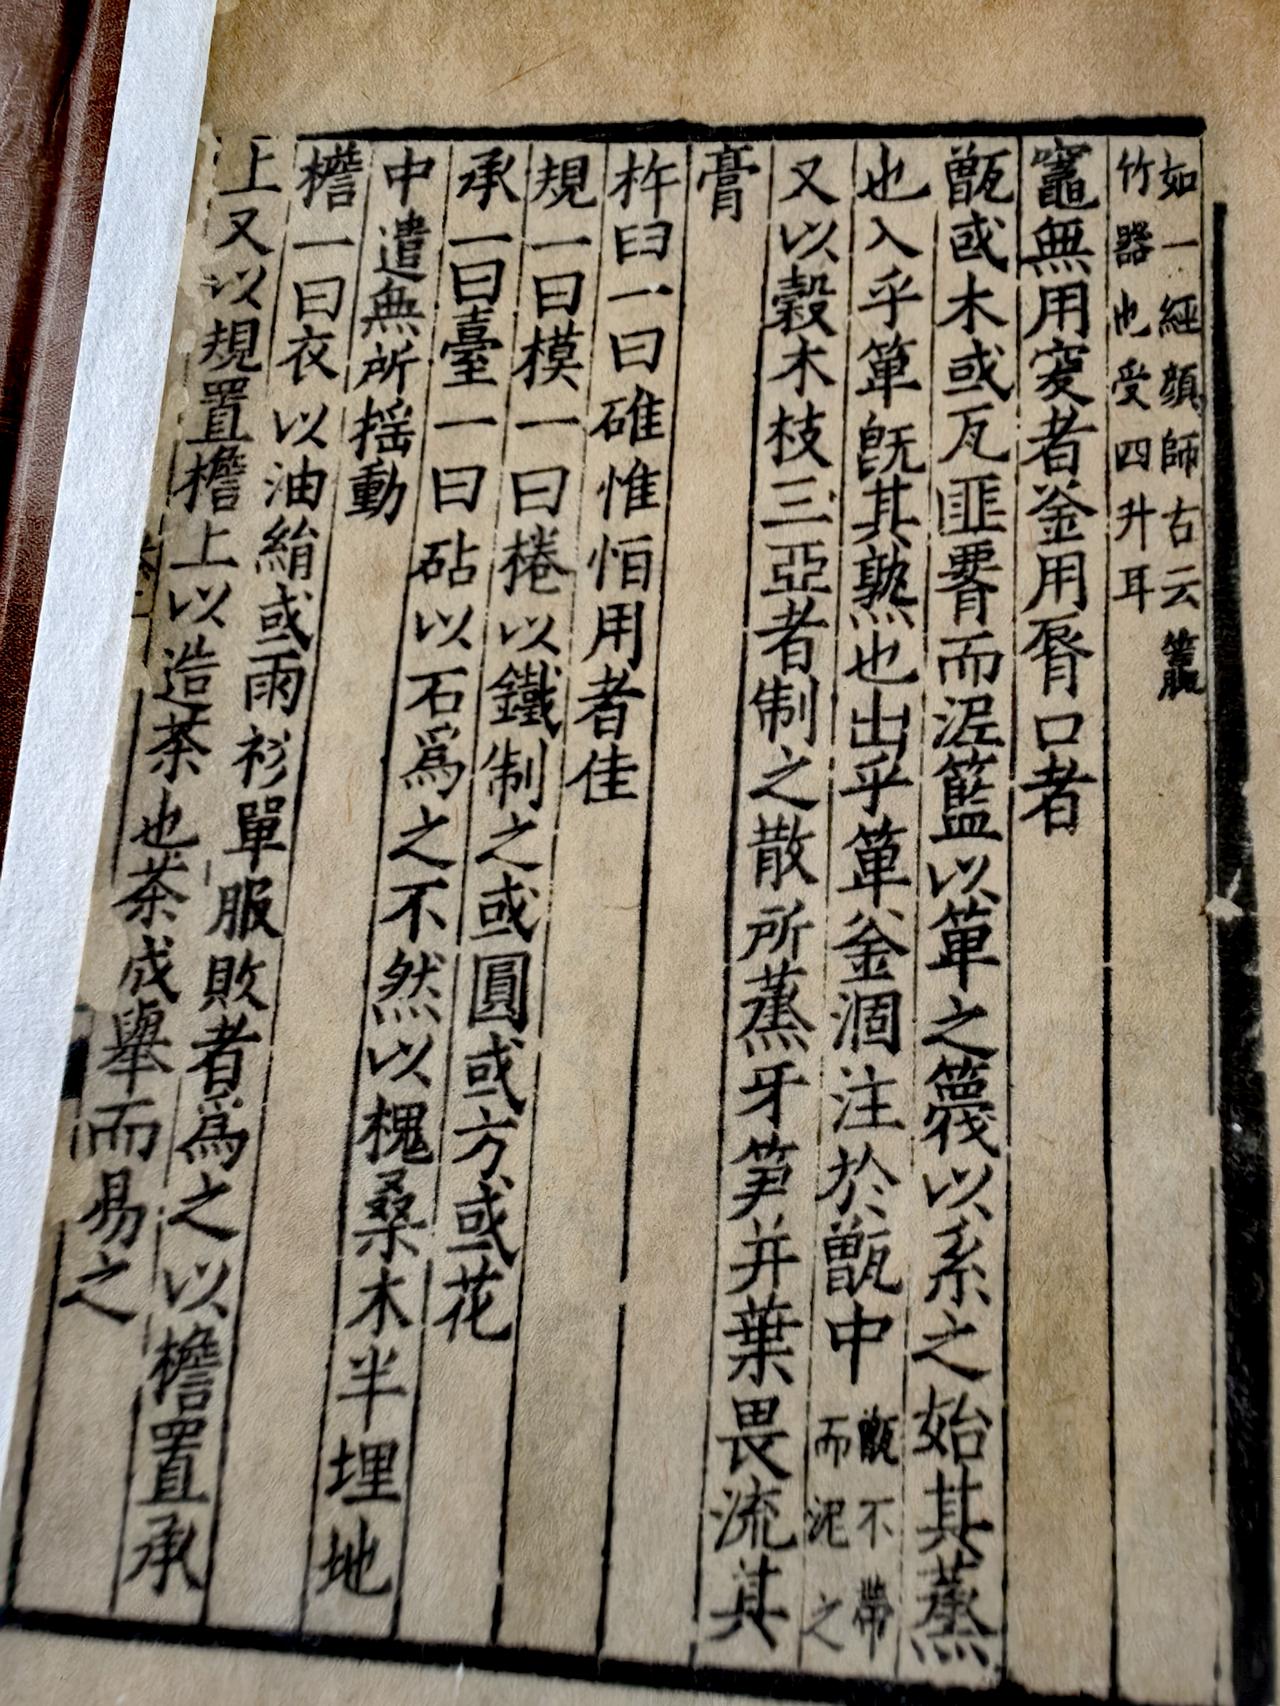 如一經顔師古云籯
竹器也受四升耳
竈無用窔者釜用脣口者
甑或木或瓦匪𦝫而泥籃以箄之篾以系之始其蒸
也入乎箄旣其熟也出乎箄釜涸注於甑中
甑不帶
而泥之
又以榖木枝三亞者制之散所蒸牙笋并葉畏流其
膏
杵臼一曰碓惟恒用者佳
規一曰模一曰棬以鐵制之或圓或方或花
承一曰臺一曰砧以石爲之不然以槐桑木半埋地
中遣無所揺動
檐一曰衣以油絹或雨衫單服敗者爲之以檐置承
上又以規置檐上以造茶也茶成舉而易之